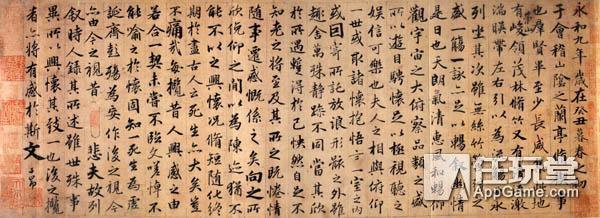 永和九年歲在癸丑暮春之初會
于會稽山陰之蘭亭脩禊事
也群賢畢至少長咸集此地
有峻領茂林脩竹又有清流激
湍暎帶左右引以為流觴曲水
列坐其次雖無絲竹管弦之
盛一觴一詠亦足以暢叙幽情
是日也天朗氣清惠風和暢仰
觀宇宙之大俯察品類之盛
所以遊目騁懷足以極視聽之
娛信可樂也夫人之相與俯仰
一世或取諸懷抱悟言一室之內
或因寄所託放浪形骸之外雖
趣舍萬殊靜躁不同當其欣
於所遇蹔得於己怏然自足不
知老之將至及其所之既惓情
隨事遷感慨係之矣向之所
欣俛仰之閒以為陳迹猶不
能不以之興懷況脩短隨化終
期於盡古人云死生亦大矣豈
不痛哉每攬昔人興感之由
若合一契未嘗不臨文嗟悼不
能喻之於懷固知死生為虛
誕齊彭殤為妄作後之視今
亦由今之視昔悲夫故列
叙時人錄其所述雖世殊事
異所以興懷其致一也後之攬
者亦將有感於斯文
子昂
任玩堂
APPGAME.COM